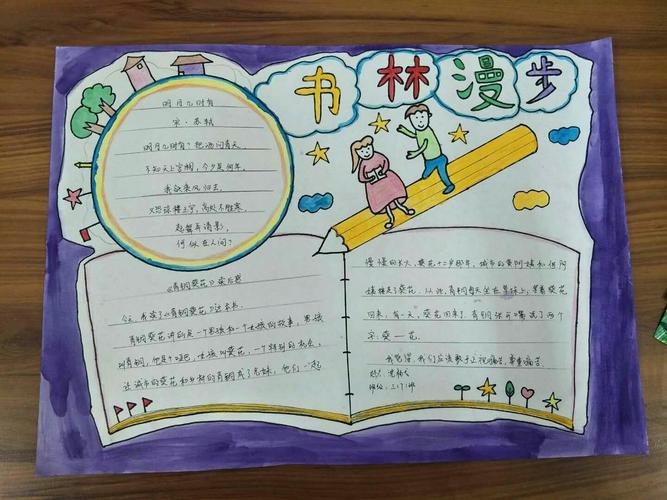 书林漫步
明月几时有
宋·苏轼
明月几时有？把酒问青天。
不知天上宫阙，今夕是何年。
我欲乘风归去，
又恐琼楼玉宇，高处不胜寒。
起舞弄清影，
何似在人间？
《青铜葵花》读后感
今天我读了《青铜葵花》这本书。
青铜葵花讲的是一个男孩和一个女孩的故事，男孩
叫青铜，他是个哑巴，女孩叫葵花，一个特别的机会，
让城市的葵花和乡村的青铜成了兄妹，他们一起
慢慢的长大，葵花十二岁那年，城市的
接走了葵花。从此，青铜每天坐在草垛上，望着葵花
回来，有一天，葵花回来了，青铜张口喊了两个
字：葵—花。
我觉得，我们应该敢于正视痛苦，尊重痛苦。